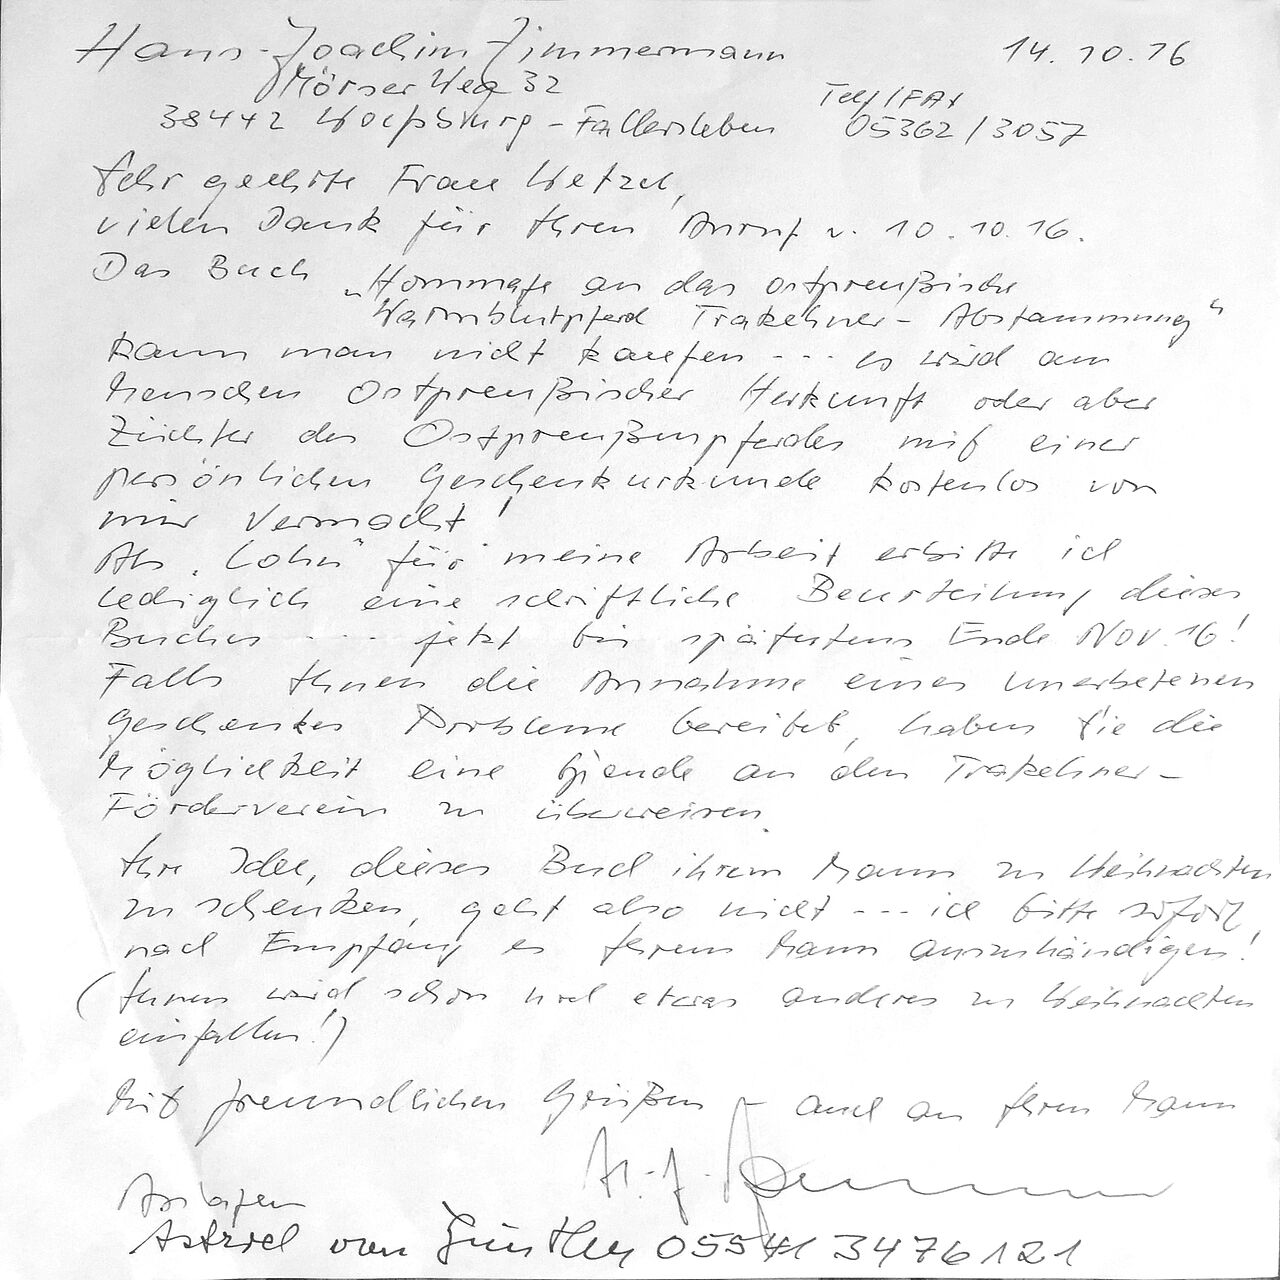 Hans-Joachim Zimmermann 14.10.16
Mörser Weg 32
38442 Wolfsburg-Fallersleben Tel/FAX 05362/3057
Sehr geehrte Frau Wetzel,
vielen Dank für Ihren Anruf v. 10.10.16.
Das Buch „Hommage an das ostpreußische
Warmblutpferd Trakehner-Abstammung"
kann man nicht kaufen --- es wird an
Menschen Ostpreußischer Herkunft oder aber
Züchter des Ostpreußenpferdes mit einer
persönlichen Geschenkurkunde kostenlos von
mir vermacht!
Als „Lohn" für meine Arbeit erbitte ich
lediglich eine schriftliche Beurteilung dieses
Buches ---- jetzt bis spätestens Ende Nov. 16!
Falls Ihnen die Annahme eines unerbetenen
Geschenkes Probleme bereitet, haben Sie die
Möglichkeit eine Spende an den Trakehner-
Förderverein zu überweisen.
Ihre Idee, dieses Buch ihrem Mann zu Weihnachten
zu schenken, geht also nicht --- ich bitte sofort
nach Empfang es Ihrem Mann auszuhändigen!
(Ihnen wird schon noch etwas anderes zu Weihnachten
einfallen!)
Mit freundlichen Grüßen - auch an Ihren Mann
H.-J. Zimmermann
Anlagen
von 3476121